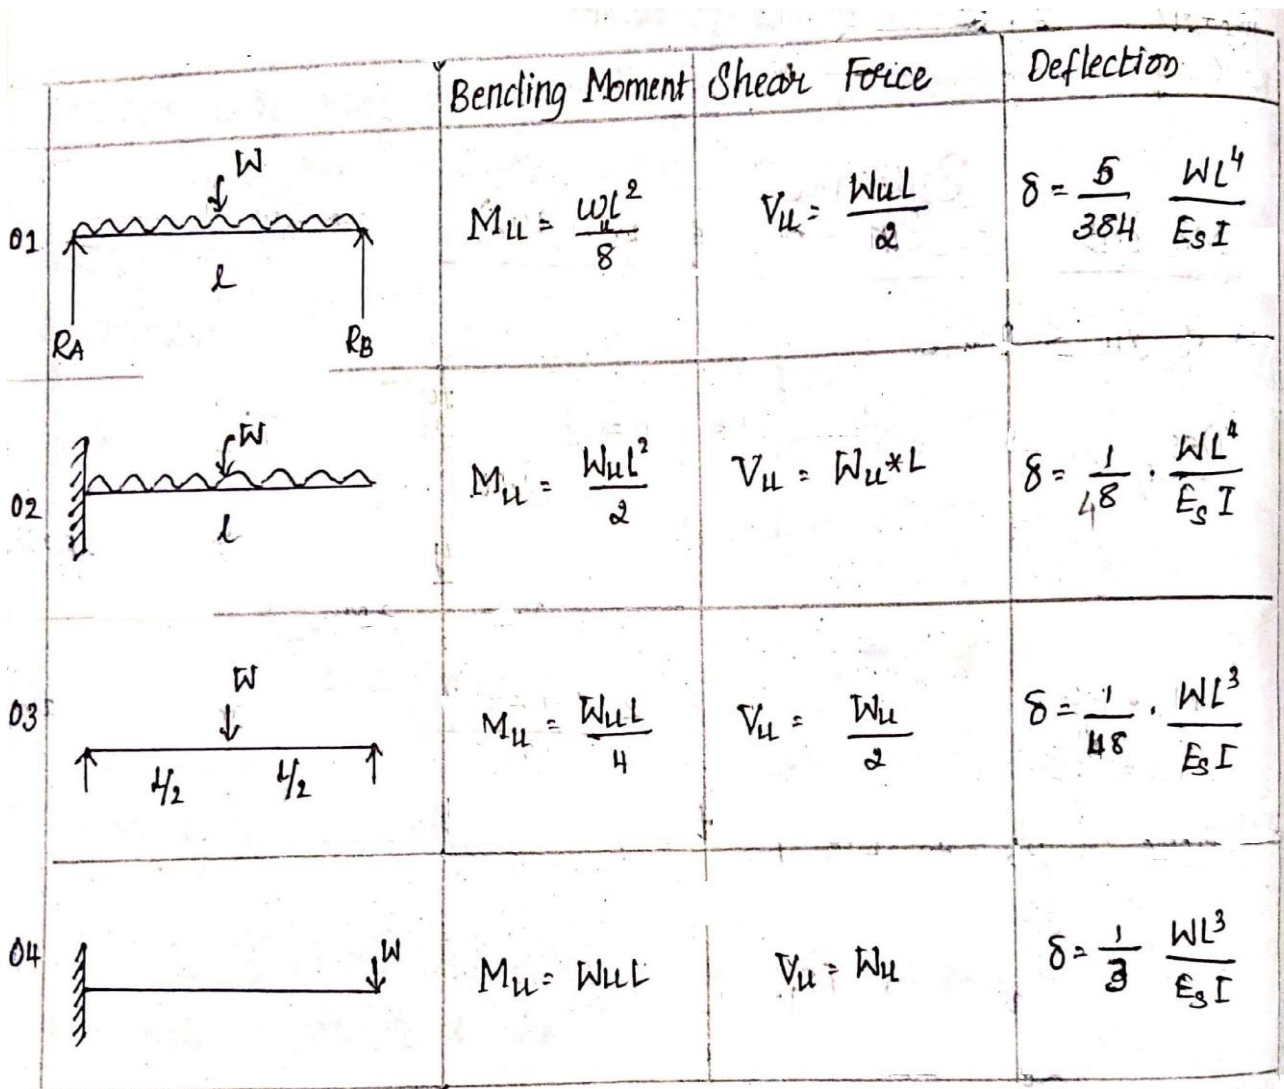 Bending Moment Shear Force Deflection
W
01 l
RA RB
Mu = wul²/8
Vu = WuL/2
δ = 5/384 WL⁴/EsI
W
02 l
Mu = WuL²/2
Vu = Wu*L
δ = 1/48 · WL⁴/EsI
W
03 L/2 L/2
Mu = WuL/4
Vu = Wu/2
δ = 1/48 · WL³/EsI
04 W
Mu = WuL
Vu = Wu
δ = 1/3 WL³/EsI